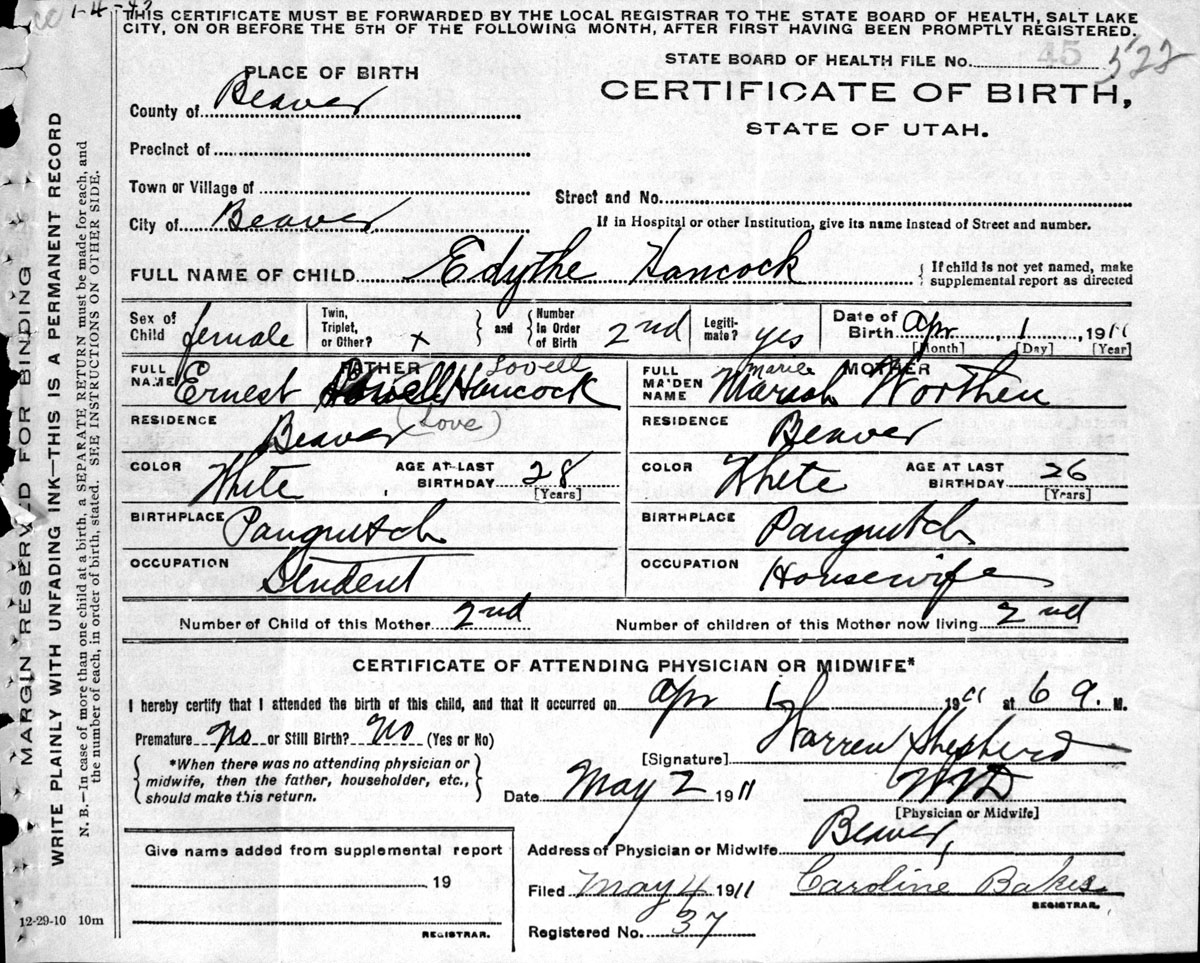 1-4-43
THIS CERTIFICATE MUST BE FORWARDED BY THE LOCAL REGISTRAR TO THE STATE BOARD OF HEALTH, SALT LAKE
CITY, ON OR BEFORE THE 5TH OF THE FOLLOWING MONTH, AFTER FIRST HAVING BEEN PROMPTLY REGISTERED.
PLACE OF BIRTH
STATE BOARD OF HEALTH FILE No. 45 522
County of Beaver
CERTIFICATE OF BIRTH,
STATE OF UTAH.
Precinct of
Town or Village of
Street and No.
City of Beaver
If in Hospital or other Institution, give its name instead of Street and number.
FULL NAME OF CHILD Edythe Hancock { If child is not yet named, make
supplemental report as directed
Sex of Child female Twin, Triplet, or Other? x } and { Number In Order of Birth 2nd Legiti- mate? yes Date of Birth Apr 1, 1911
[Month] [Day] [Year]
FATHER
MOTHER
Lovell
Marie
FULL NAME Ernest Lovell Hancock
FULL MAIDEN NAME Mariah Worthen
RESIDENCE Beaver (Love)
RESIDENCE Beaver
COLOR White AGE AT LAST BIRTHDAY 28 [Years]
COLOR White AGE AT LAST BIRTHDAY 26 [Years]
BIRTHPLACE Panguitch
BIRTHPLACE Panguitch
OCCUPATION Student
OCCUPATION Housewife
Number of Child of this Mother 2nd Number of children of this Mother now living 2nd
CERTIFICATE OF ATTENDING PHYSICIAN OR MIDWIFE*
I hereby certify that I attended the birth of this child, and that it occurred on Apr 1, 1911 at 6 a. M.
Premature No or Still Birth? No (Yes or No)
[Signature] Warren Shepherd
{ *When there was no attending physician or
midwife, then the father, householder, etc.,
should make this return. }
Date May 2 1911 MD
[Physician or Midwife]
Address of Physician or Midwife Beaver,
Give name added from supplemental report
19
REGISTRAR.
Filed May 4 1911 Caroline Bakes
REGISTRAR.
Registered No. 37
12-29-10 10m
MARGIN RESERVED FOR BINDING
WRITE PLAINLY WITH UNFADING INK—THIS IS A PERMANENT RECORD
N. B.—In case of more than one child at a birth, a SEPARATE RETURN must be made for each, and
the number of each, in order of birth, stated. SEE INSTRUCTIONS ON OTHER SIDE.